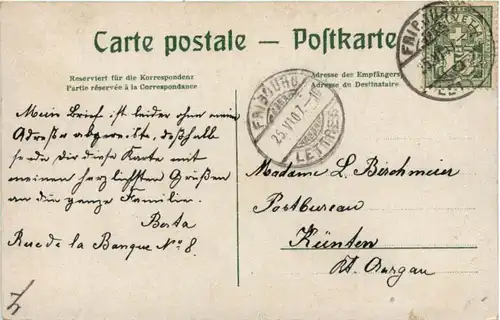 Carte postale — Postkarte
Reserviert für die Korrespondenz
Partie réservée à la Correspondance
Adresse des Empfängers
Adresse du Destinataire
FRIBOURG
25.VI.07
LETTRES
Mein Brief ist leider ohne meine
Adresse abgereist, deßhalb
sende Dir diese Karte mit
meinen herzlichsten Grüßen
an die ganze Familie.
Berta
Rue de la Banque No 8.
Madame L. Birchmeier
Postbureau
Künten
Kt. Aargau